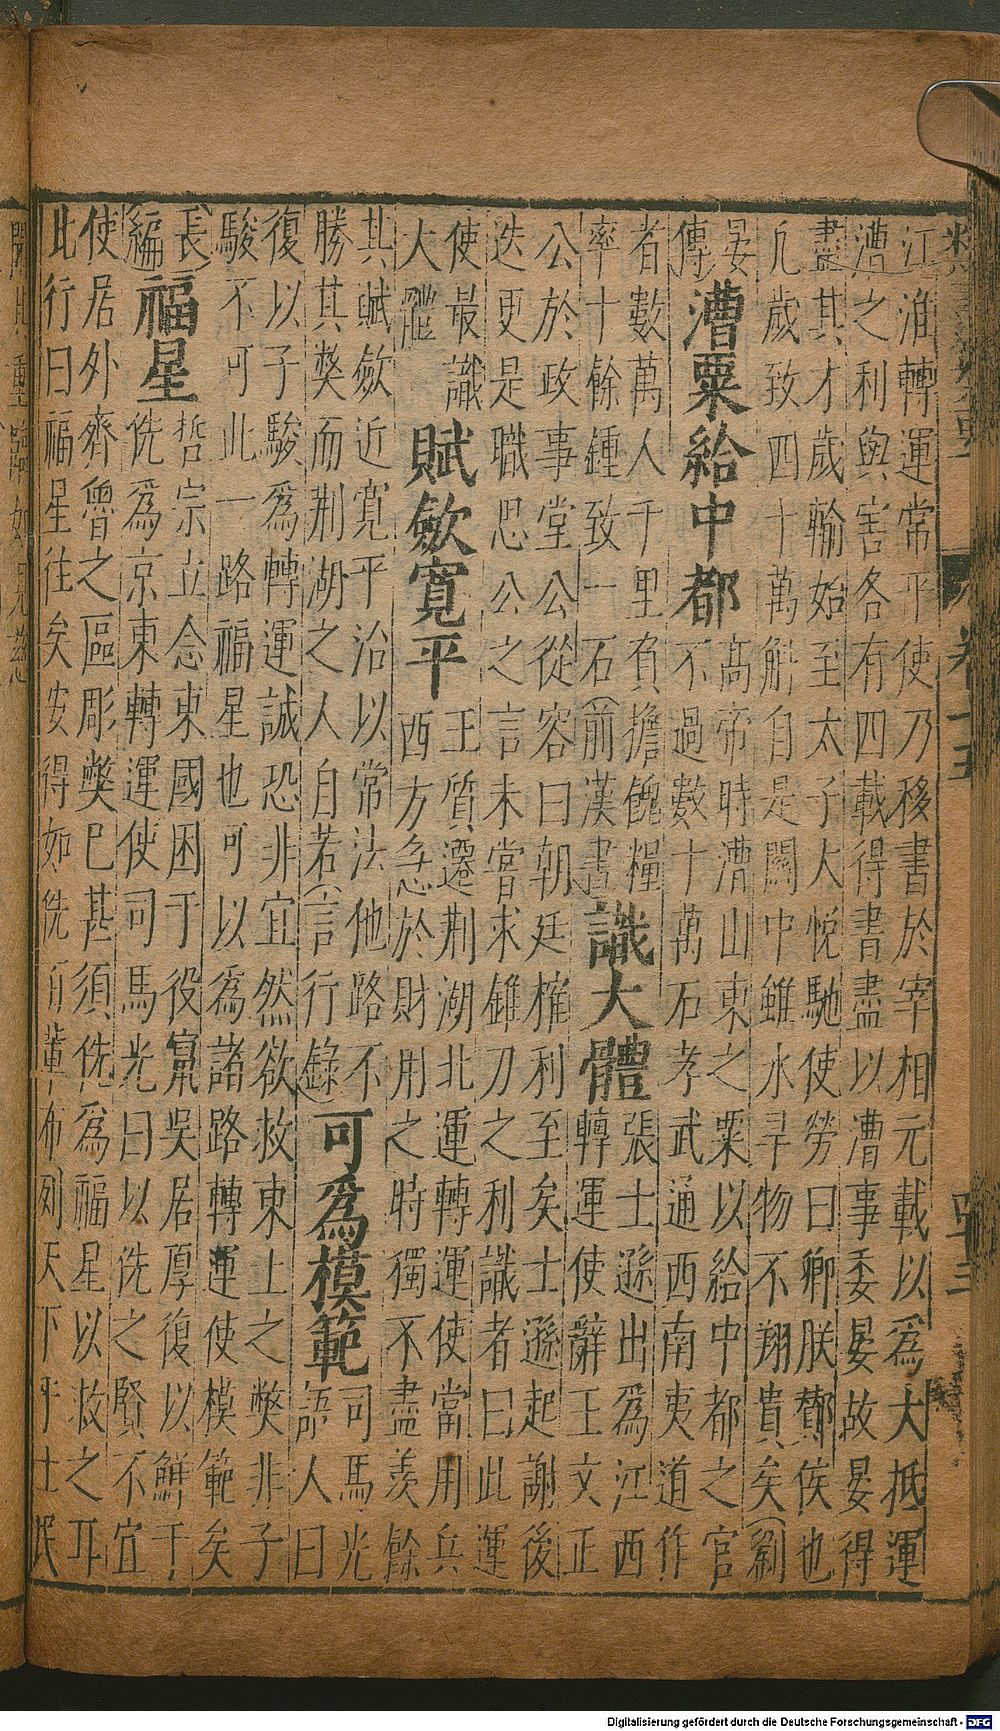 江淮轉運常平使乃移書於宰相元載以爲大抵運
漕之利與害各有四載得書盡以漕事委晏故晏得
盡其才歲輸始至太子大悅馳使勞曰卿朕酇侯也
凡歲致四十萬斛自是關中雖水旱物不翔貴矣(劉
晏傳)
漕粟給中都
高帝時漕山東之粟以給中都之官
不過數十萬石孝武通西南夷道作
者數萬人千里負擔餽糧
率十餘鍾致一石(前漢書
識大體
張士遜出爲江西
轉運使辭王文正
公於政事堂公從容曰朝廷榷利至矣士遜起謝後
迭更是職思公之言未嘗求錐刀之利識者曰此運
使最識
大體
賦斂寬平
王質遷荆湖北運轉運使當用兵
西方急於財用之時獨不盡羨餘
其賦斂近寬平治以常法他路不
勝其獘而荆湖之人自若(言行錄)
可爲模範
司馬光
語人曰
復以子駿爲轉運誠恐非宜然欲救東土之獘非子
駿不可此一路福星也可以爲諸路轉運使模範矣
長編)
福星
哲宗立念東國困于役吳居厚復以鮮于
侁爲京東轉運使司馬光曰以侁之賢不宜
使居外齊魯之區彫獘已甚須侁爲福星以救之耳
此行曰福星往矣安得如侁百輩布列天下乎士民
卷十五
Digitalisierung gefördert durch die Deutsche Forschungsgemeinschaft - DFG